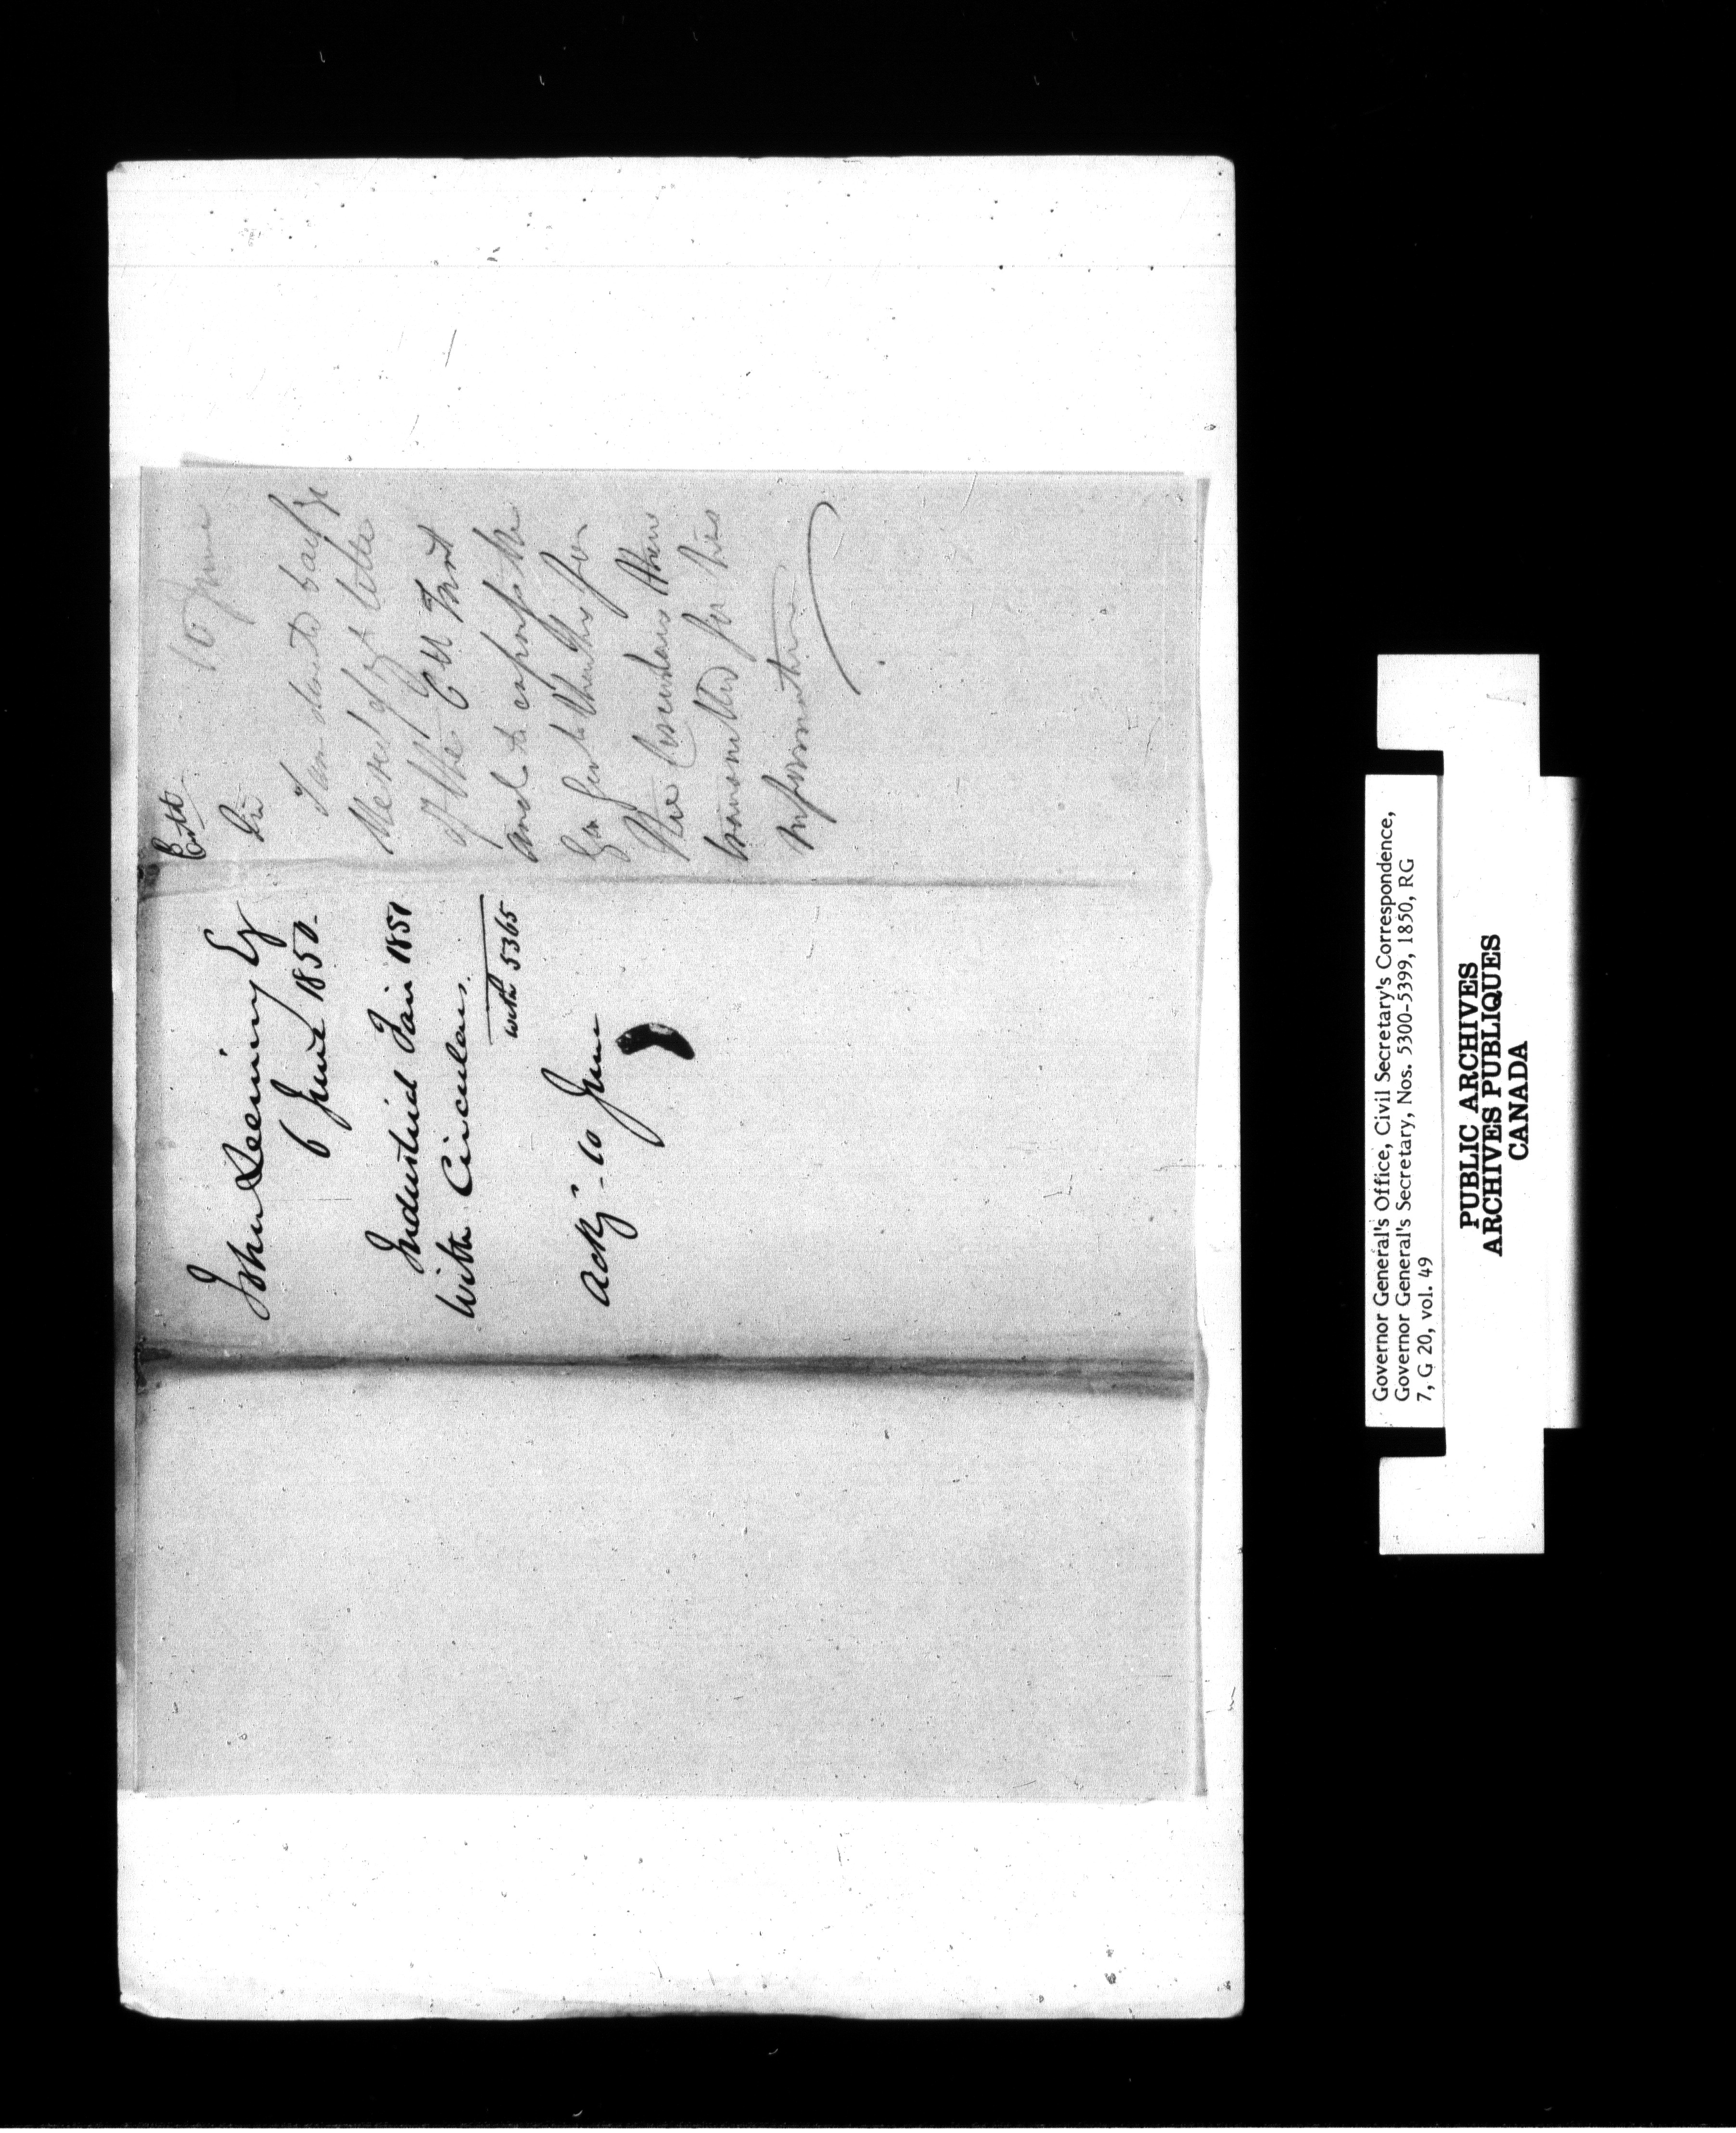 John Leeming Esq
6 June 1850.
Industrial Fair 1851
with Circulars.
with 5365
Ackg - 10 June
10 June
Sir
I am directed to
of yr letter
of the 6th Inst
and to express the
Gen for
the Circulars
transmitted for his
information
Governor General's Office, Civil Secretary's Correspondence,
Governor General's Secretary, Nos. 5300-5399, 1850, RG
7, G 20, vol. 49
PUBLIC ARCHIVES
ARCHIVES PUBLIQUES
CANADA